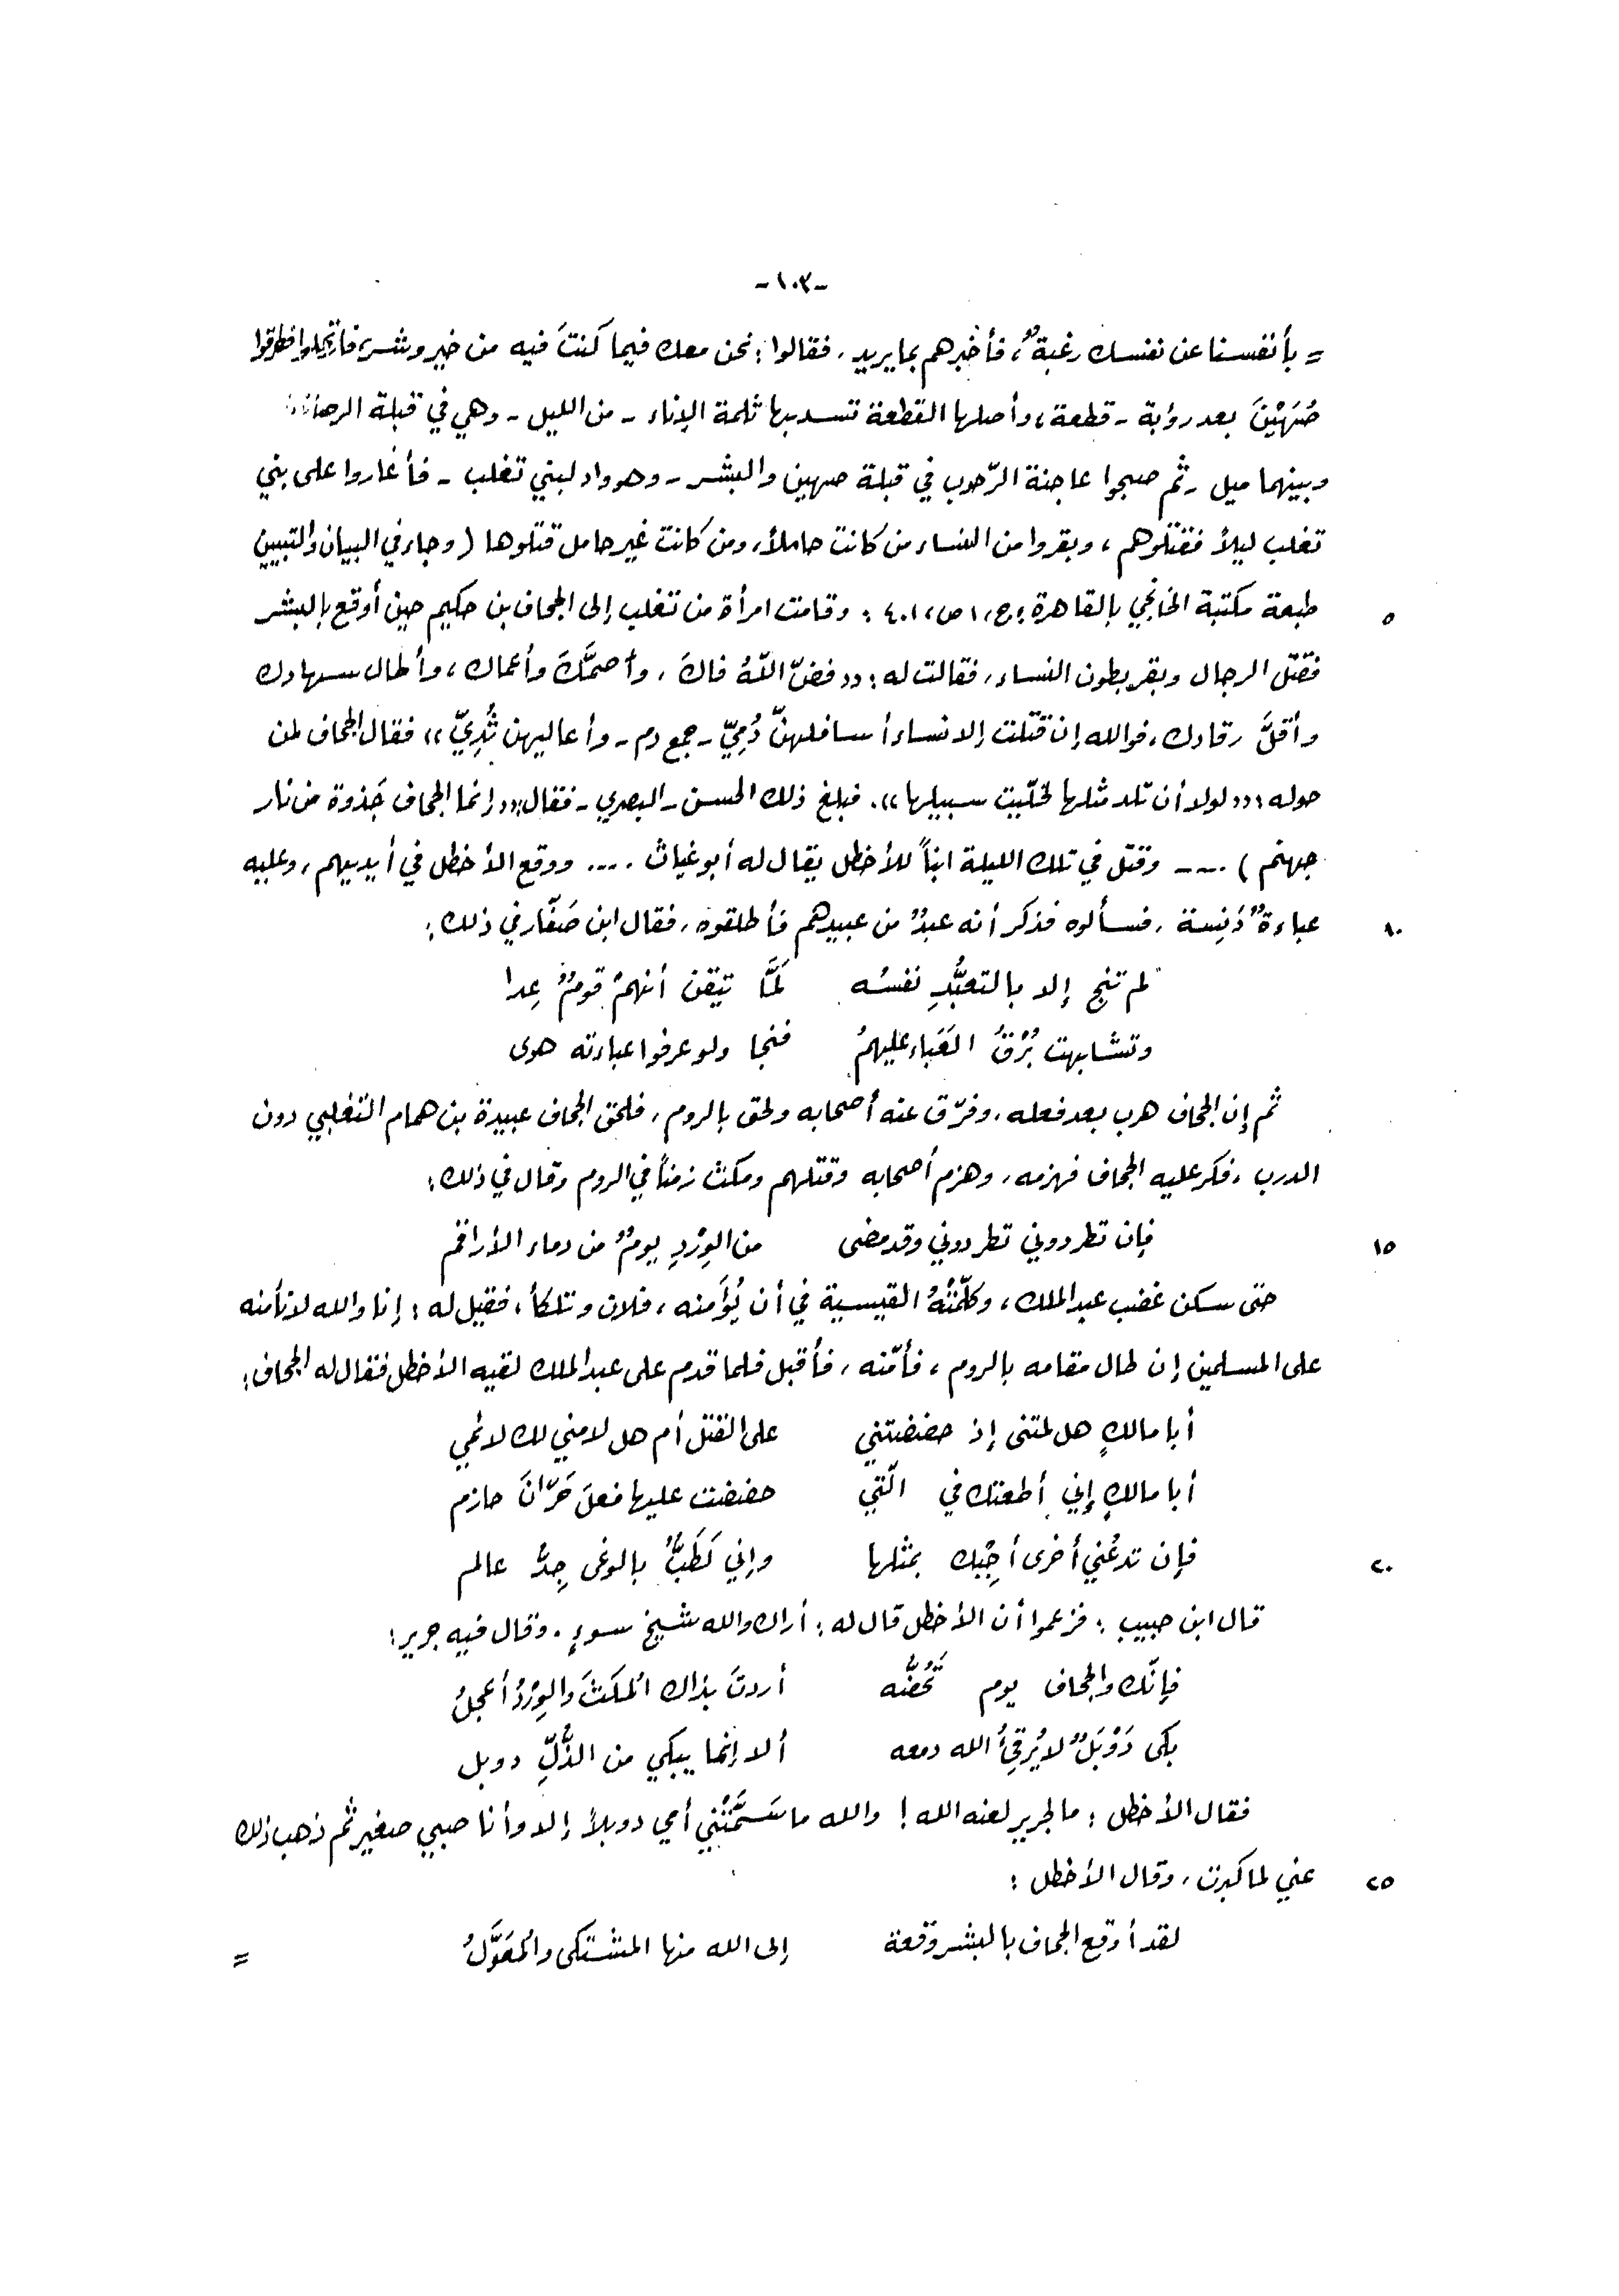 -١٠٣-
= بأنفسنا عن نفسك رغبةٌ، فأخبرهم بما يريد، فقالوا: نحن معك فيما كنتَ فيه من خير وشر، فارتحلوا فطرقوا
صُهَيْنَ بعد رؤبة - قطعة، وأصلها القطعة تسد بها ثلمة الإناء - من الليل - وهي في قبلة الرصافة
وبينهما ميل - ثم صبحوا عاجنة الرّحوب في قبلة صهين والبشر - وهو واد لبني تغلب - فأغاروا على بني
تغلب ليلاً فقتلوهم، وبقروا من النساء من كانت حاملاً، ومن كانت غير حامل قتلوها (وجاء في البيان والتبيين
٥ طبعة مكتبة الخانجي بالقاهرة، ج، ١ ص، ٤٠١: وقامت امرأة من تغلب إلى الجحاف بن حكيم حين أوقع بالبشر
فقتل الرجال وبقر بطون النساء، فقالت له: «فضّ اللّهُ فاكَ، وأصمَّكَ وأعماك، وأطال سهادك
وأقلَّ رقادك، فوالله إن قتلت إلا نساء أسافلهنّ دُمِيّ - جمع دم - وأعاليهن ثُدِيّ» فقال الجحاف لمن
حوله: «لولا أن تلد مثلها لخلّيت سبيلها». فبلغ ذلك الحسن - البصري - فقال: «إنما الجحاف جَذوة من نار
جهنم) .... وقتل في تلك الليلة ابناً للأخطل يقال له أبو غياث .... ووقع الأخطل في أيديهم، وعليه
١٠ عباءةٌ دَنِسة، فسألوه فذكر أنه عبدٌ من عبيدهم فأطلقوه، فقال ابن صَفّار في ذلك:
لم تنج إلا بالتعبُّدِ نفسُه لَمَّا تيقن أنهمْ قومٌ عِدا
وتشابهت بُرْقُ العَبَاء عليهمُ فنجا ولو عرفوا عباءته هوى
ثم إن الجحاف هرب بعد فعله، وفرّق عنه أصحابه ولحق بالروم، فلحق الجحاف عبيدة بن همام التغلبي دون
الدرب، فكر عليه الجحاف فهزمه، وهزم أصحابه وقتلهم ومكث زمناً في الروم وقال في ذلك:
١٥ فإن تطردوني تطردوني وقد مضى من الوِرْدِ يومٌ من دماء الأراقم
حتى سكن غضب عبد الملك، وكلّمتْهُ القيسية في أن يُؤَمنه، فلان وتلكأ، فقيل له: إنا والله لا نأمنه
على المسلمين إن طال مقامه بالروم، فأمّنه، فأقبل فلما قدم على عبد الملك لقيه الأخطل فقال له الجحاف:
أبا مالكٍ هل لمتني إذ حضضتني على القتل أم هل لامني لك لائمي
أبا مالكٍ إني أطعتك في الّتي حضضت عليها فعلَ حَرّانَ حازم
٢٠ فإن تدعُني أخرى أجِبْك بمثلها وإني لَطَبٌّ بالوغى جِدُّ عالم
قال ابن حبيب: فزعموا أن الأخطل قال له: أراك والله شيخ سوءٍ. وقال فيه جرير:
فإنّك والجحاف يوم تَحُضُّه أردتَ بذاك المكثَ والوِرْدُ أعجلُ
بكى دَوْبَلٌ لا يُرقِئُ الله دمعه ألا إنما يبكي من الذُّلِّ دوبل
فقال الأخطل: ما لجرير لعنه الله! والله ما سَمَّتْني أمي دوبلاً إلا وأنا صبي صغير ثم ذهب ذلك
٢٥ عني لما كبرت، وقال الأخطل:
لقد أوقع الجحاف بالبشر وقعة إلى الله منها المشتكى والمُعَوَّلُ =